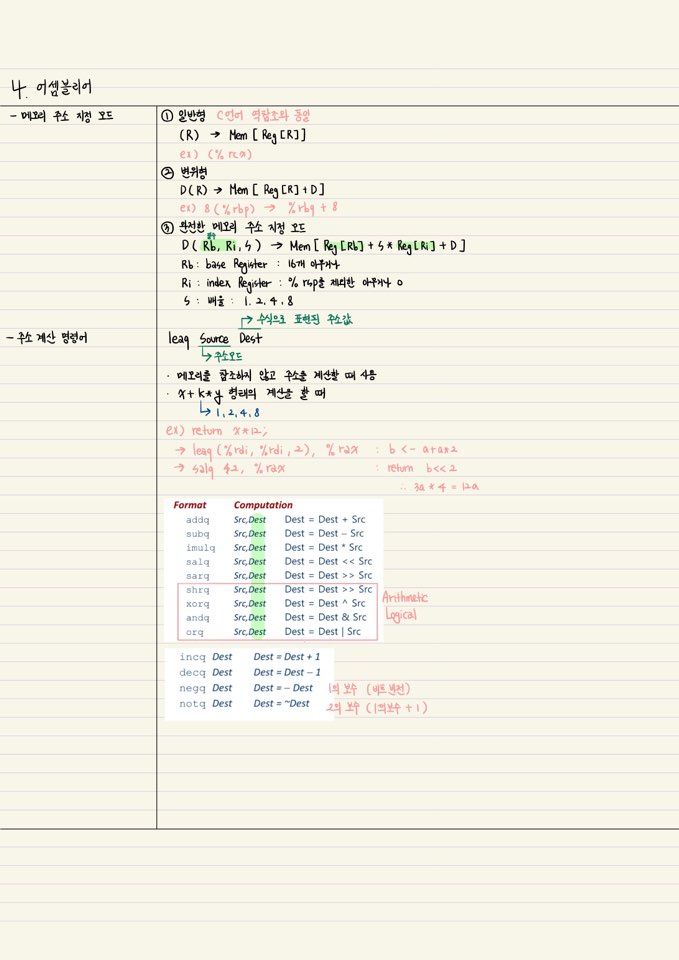 4. 어셈블리어
- 메모리 주소 지정 모드
① 일반형 C언어 역참조와 동일
(R) → Mem [ Reg [R] ]
ex) (% rcx)
② 변위형
D(R) → Mem [ Reg [R] + D ]
ex) 8(%rbp) → %rbq + 8
③ 완전한 메모리 주소 지정 모드
D( Rb, Ri, S ) → Mem [ Reg [Rb] + S * Reg [Ri] + D ]
Rb : base Register : 16개 아무거나
Ri : index Register : % rsp를 제외한 아무거나 o
S : 배율 : 1, 2, 4, 8
→ 수식으로 표현된 주소값
- 주소 계산 명령어
leaq Source Dest
→ 주소모드
· 메모리를 참조하지 않고 주소를 계산할 때 사용
· x + k*y 형태의 계산을 할 때
→ 1, 2, 4, 8
ex) return x*12;
→ leaq (%rdi, %rdi, 2), %rax : b <- a+a*2
→ salq $2, %rax : return b<<2
∴ 3a * 4 = 12a
Format Computation
addq Src,Dest Dest = Dest + Src
subq Src,Dest Dest = Dest − Src
imulq Src,Dest Dest = Dest * Src
salq Src,Dest Dest = Dest << Src
sarq Src,Dest Dest = Dest >> Src
shrq Src,Dest Dest = Dest >> Src
xorq Src,Dest Dest = Dest ^ Src
andq Src,Dest Dest = Dest & Src
orq Src,Dest Dest = Dest | Src
Arithmetic
Logical
incq Dest Dest = Dest + 1
decq Dest Dest = Dest − 1
negq Dest Dest = − Dest 1의 보수 (비트 반전)
notq Dest Dest = ~Dest 2의 보수 (1의보수 + 1)